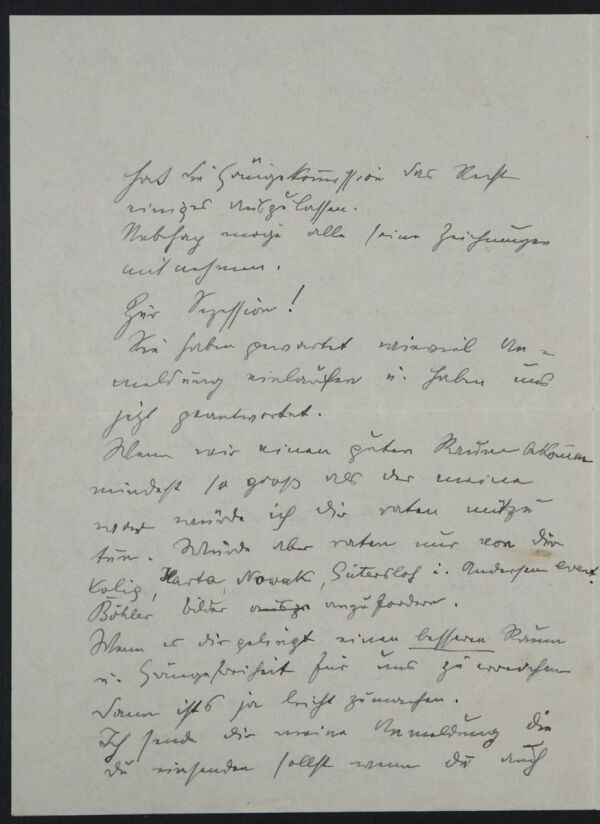 hat die Hängekommission das Recht
einiges auszulassen.
Nebehay möge alle seine Zeichnungen
mitnehmen.
Zur Sezession!
Sie haben gewartet wieviel An-
meldung einlaufen u. haben uns
jetzt geantwortet.
Wenn wir einen guten Raum bekommen
mindest so groß als der meine
war würde ich dir raten mitzu
tun. Würde aber raten nur von dir
Kolig, Harta, Nowak, Gütersloh u. Andersen event.
Böhler bilder anzufordern.
Wenn es dir gelingt einen besseren Raum
u. Hängefreiheit für uns zu erreichen
dann ists ja leicht zumachen.
Ich sende dir meine Anmeldung die
du einsenden sollst wenn du auch